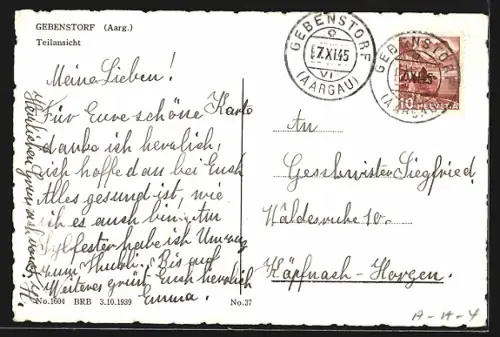 GEBENSTORF (Aarg.)
Teilansicht
Meine Lieben!
Für Eure schöne Karte
danke ich herzlich,
ich hoffe dan bei Euch
Alles gesund ist, wie
ich es auch bin. Am
Sylfester habe ich Umzug
zum Thubli. Bis auf
Weiteres grüsst Euch herzlich
Emma.
No. 1604 BRB 3.10.1939 No. 37
GEBENSTORF
7.XI.45
VI
(AARGAU)
GEBENSTORF
7.XI.45
(AARGAU)
10
HELVETIA
An
Geschwister Siegfried,
Waldesruhe 10.
Käpfnach-Horgen.
A-H-4